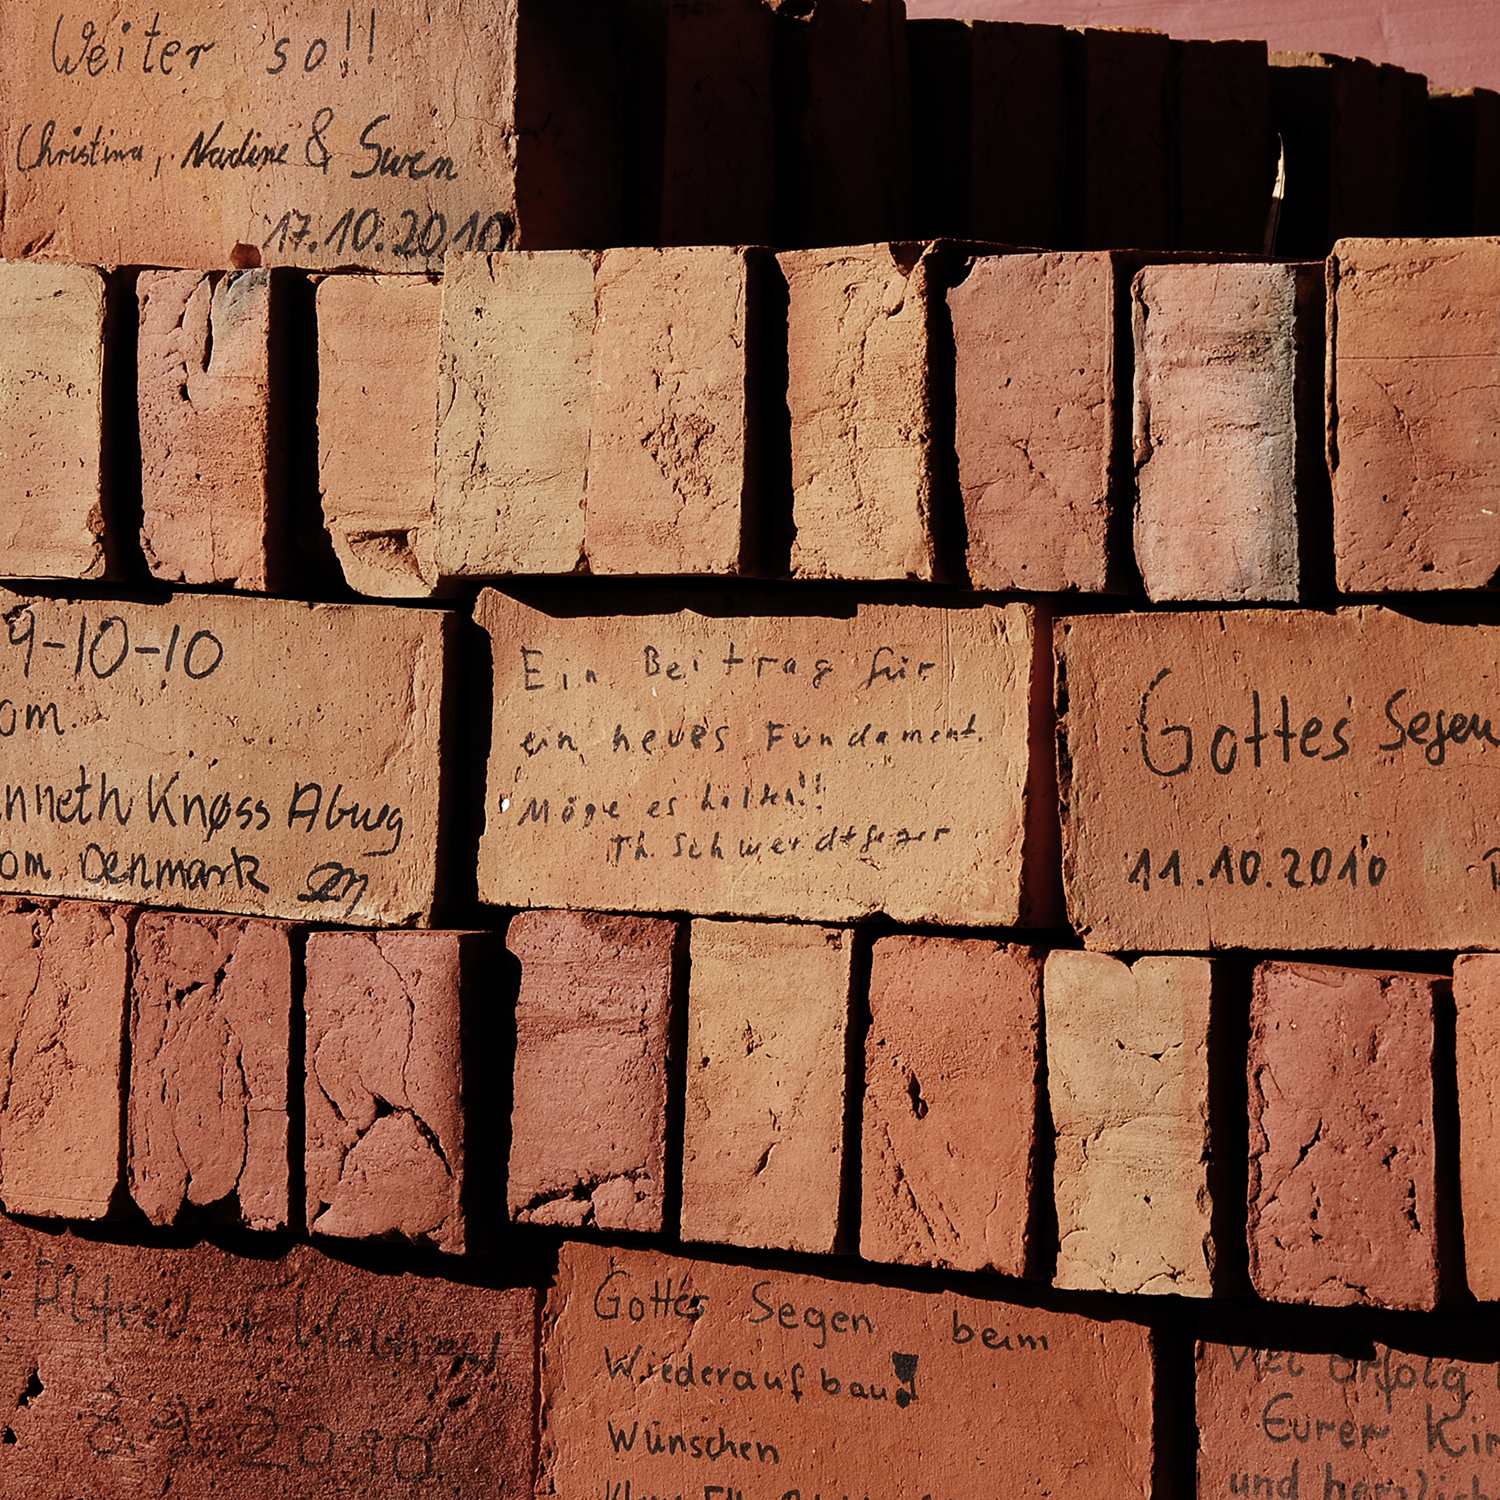 Weiter so!!
Christina, Nadine & Swen
17.10.2010
9-10-10
om.
nneth Knøss Abug
om Denmark
Ein Beitrag für
ein neues Fundament.
Möge es halten!!
Th. Schwerdtfeger
Gottes Segen
11.10.2010
Alfred
2010
Gottes Segen beim
Wiederaufbau!
Wünschen
Viel Erfolg
Eurer Kir
und herzlich